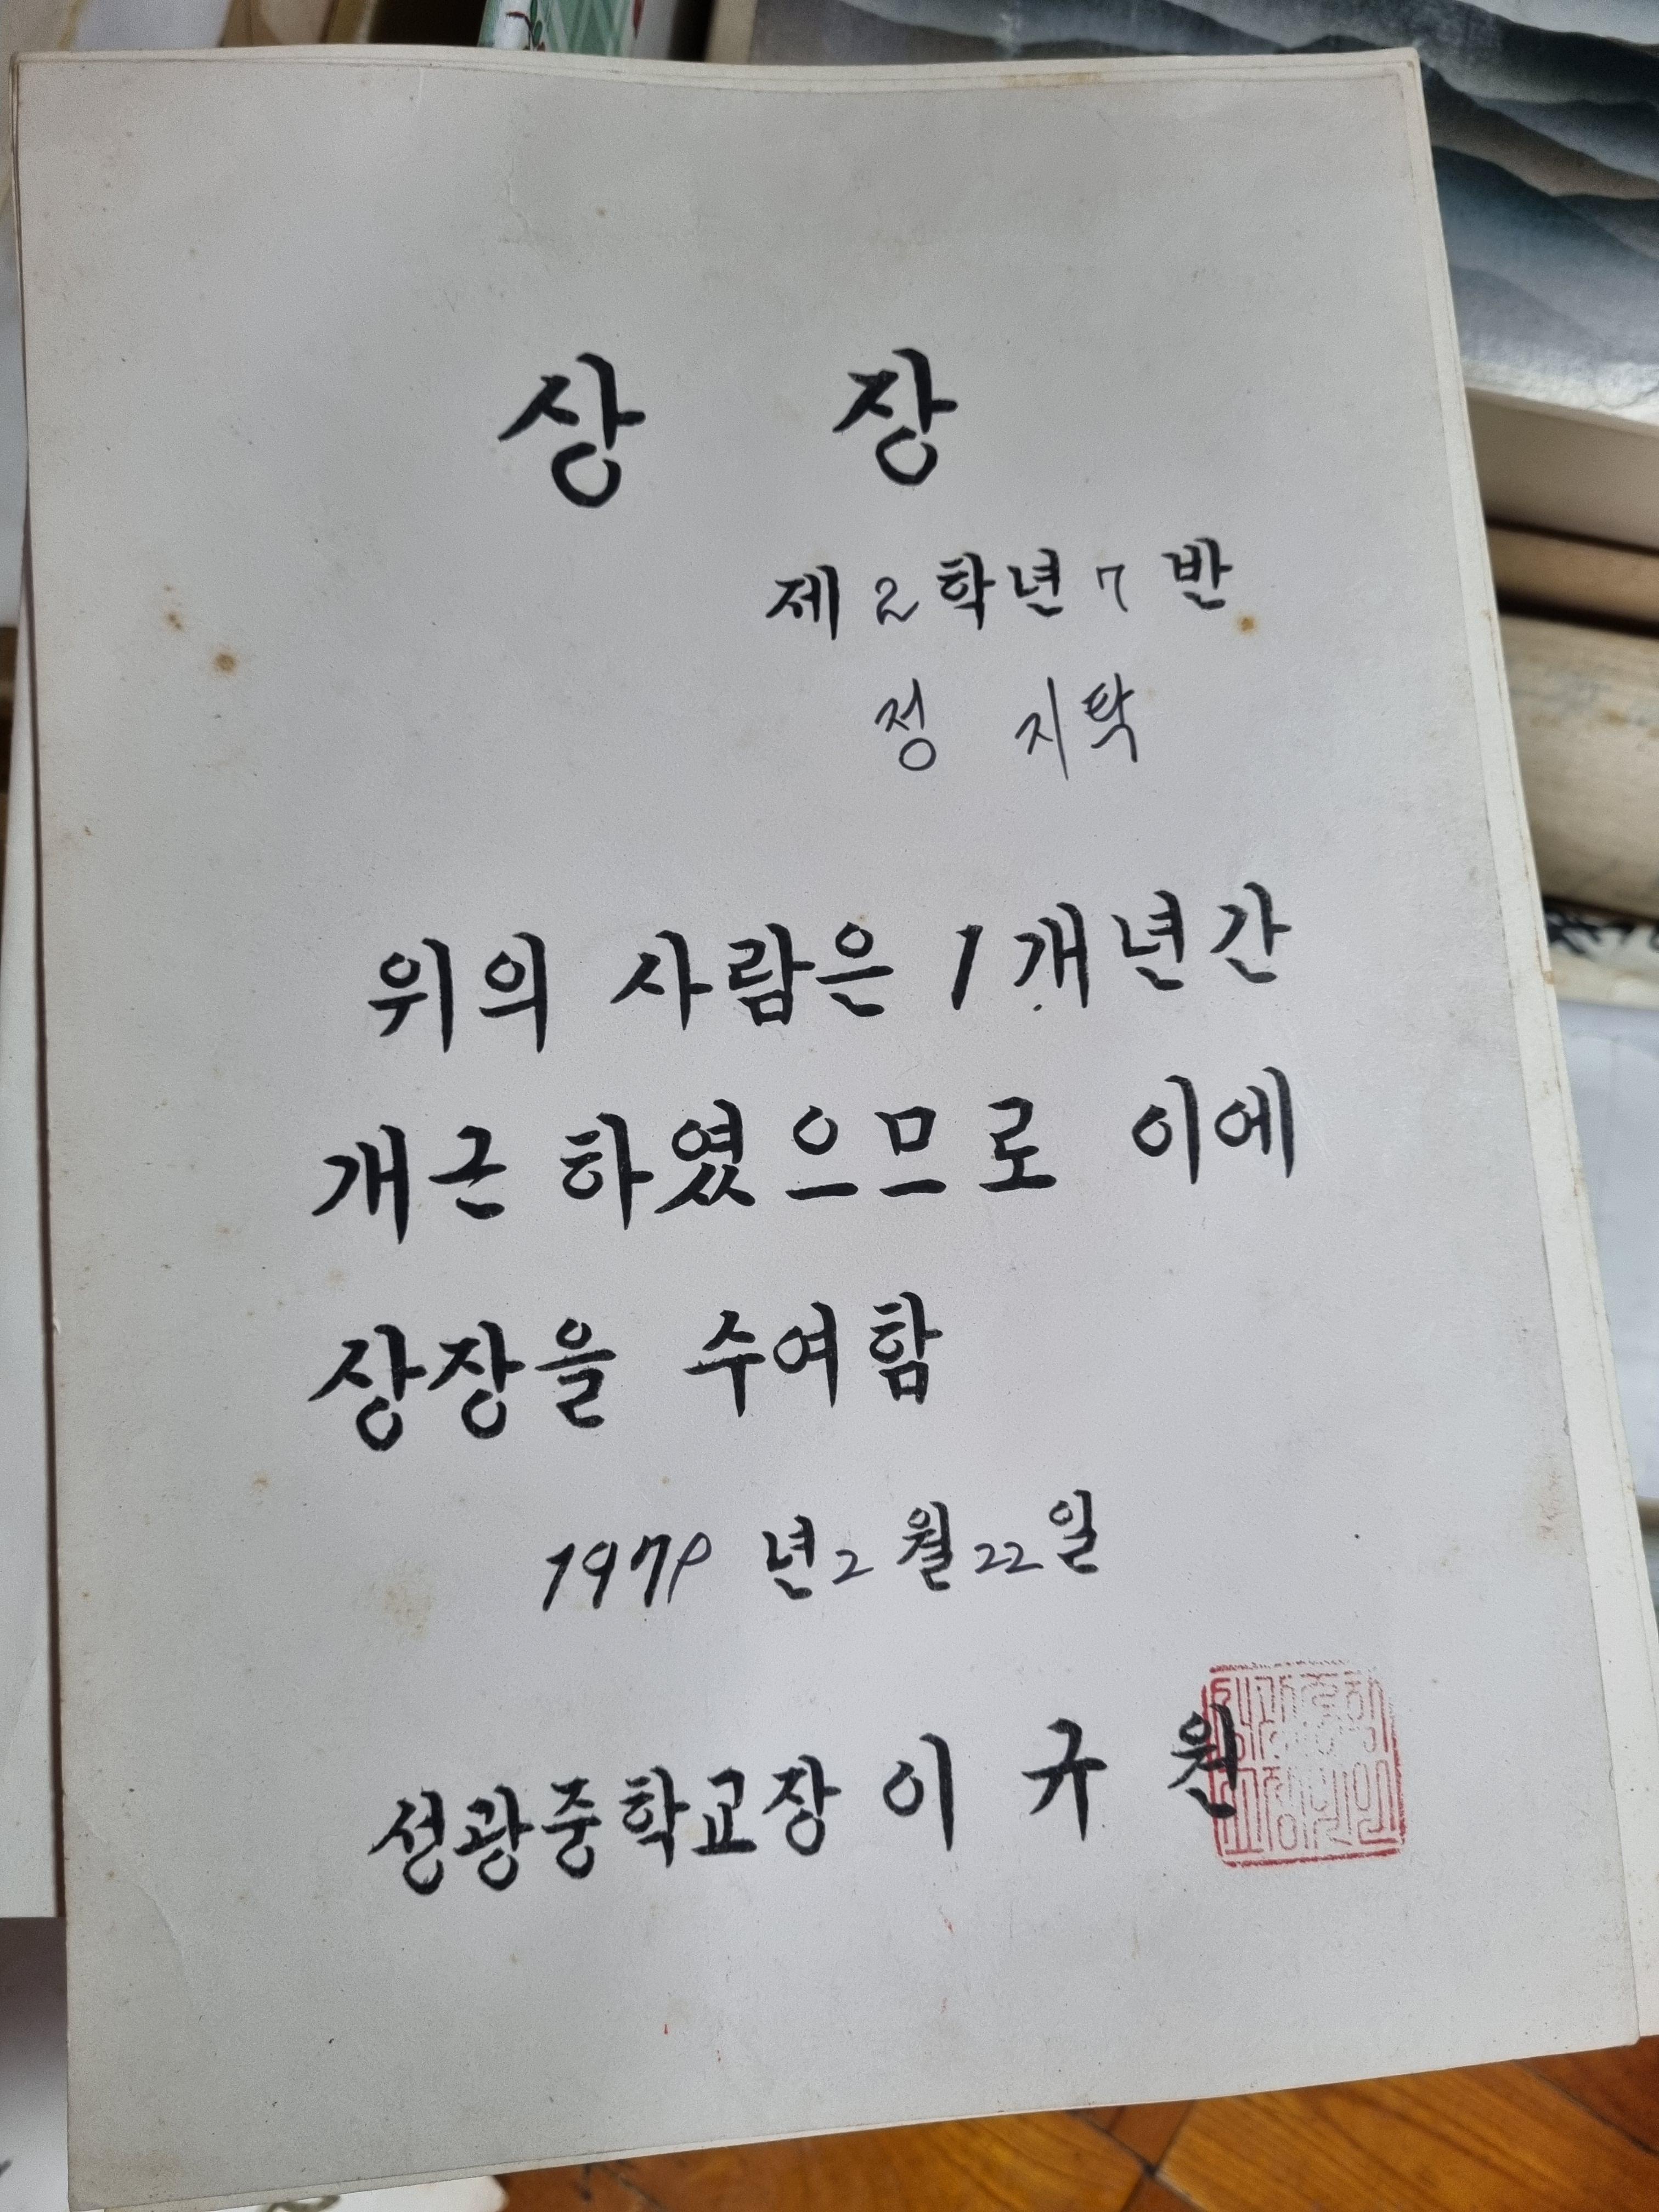 상 장
제 2 학년 7 반
정 지탁
위의 사람은 1개년간
개근 하였으므로 이에
상장을 수여함
1979 년 2 월 22 일
성광중학교장 이 규 원